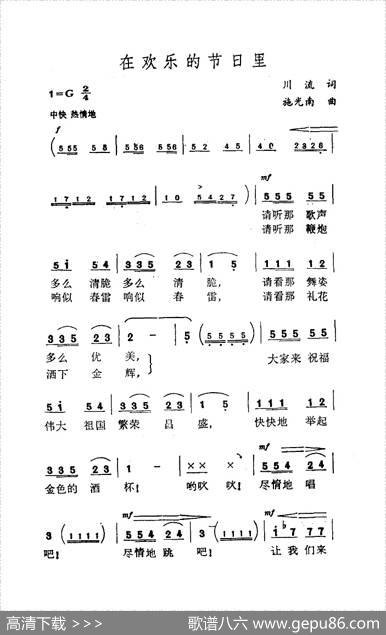 在欢乐的节日里
1=G 2/4
川 流 词
中快 热情地
施光南 曲
f
(555 58 | 5556 5556 | 52 45 | 02326 |
mf
1712 1712 | 10 5427) | 555 555 |
请听那 歌声
请听那 鞭炮
5i 54 | 335 23 | 1 5 | 111 12 |
多么 清脆 多么 清 脆, 请看那 舞姿
响似 春雷 响似 春 雷, 请看那 礼花
335 23 | 2 - | 5 (5555) | 555 555 |
多么 优 美, 大家来 祝福
洒下 金 辉,
5i 54 | 335 23 | 1 5 | 111 12 |
伟大 祖国 繁荣 昌 盛, 快快地 举起
mf
335 23 | 1 - | ×× × | 554 24 |
金色的 酒 杯! 哟吙 吙! 尽情地 唱
mf
mf
3 (1111) | 554 24 | 3 (1111) | i♭77 77 |
吧! 尽情地 跳 吧! 让 我 们 来
高清下载 >>>
歌谱八六 www.gepu86.com